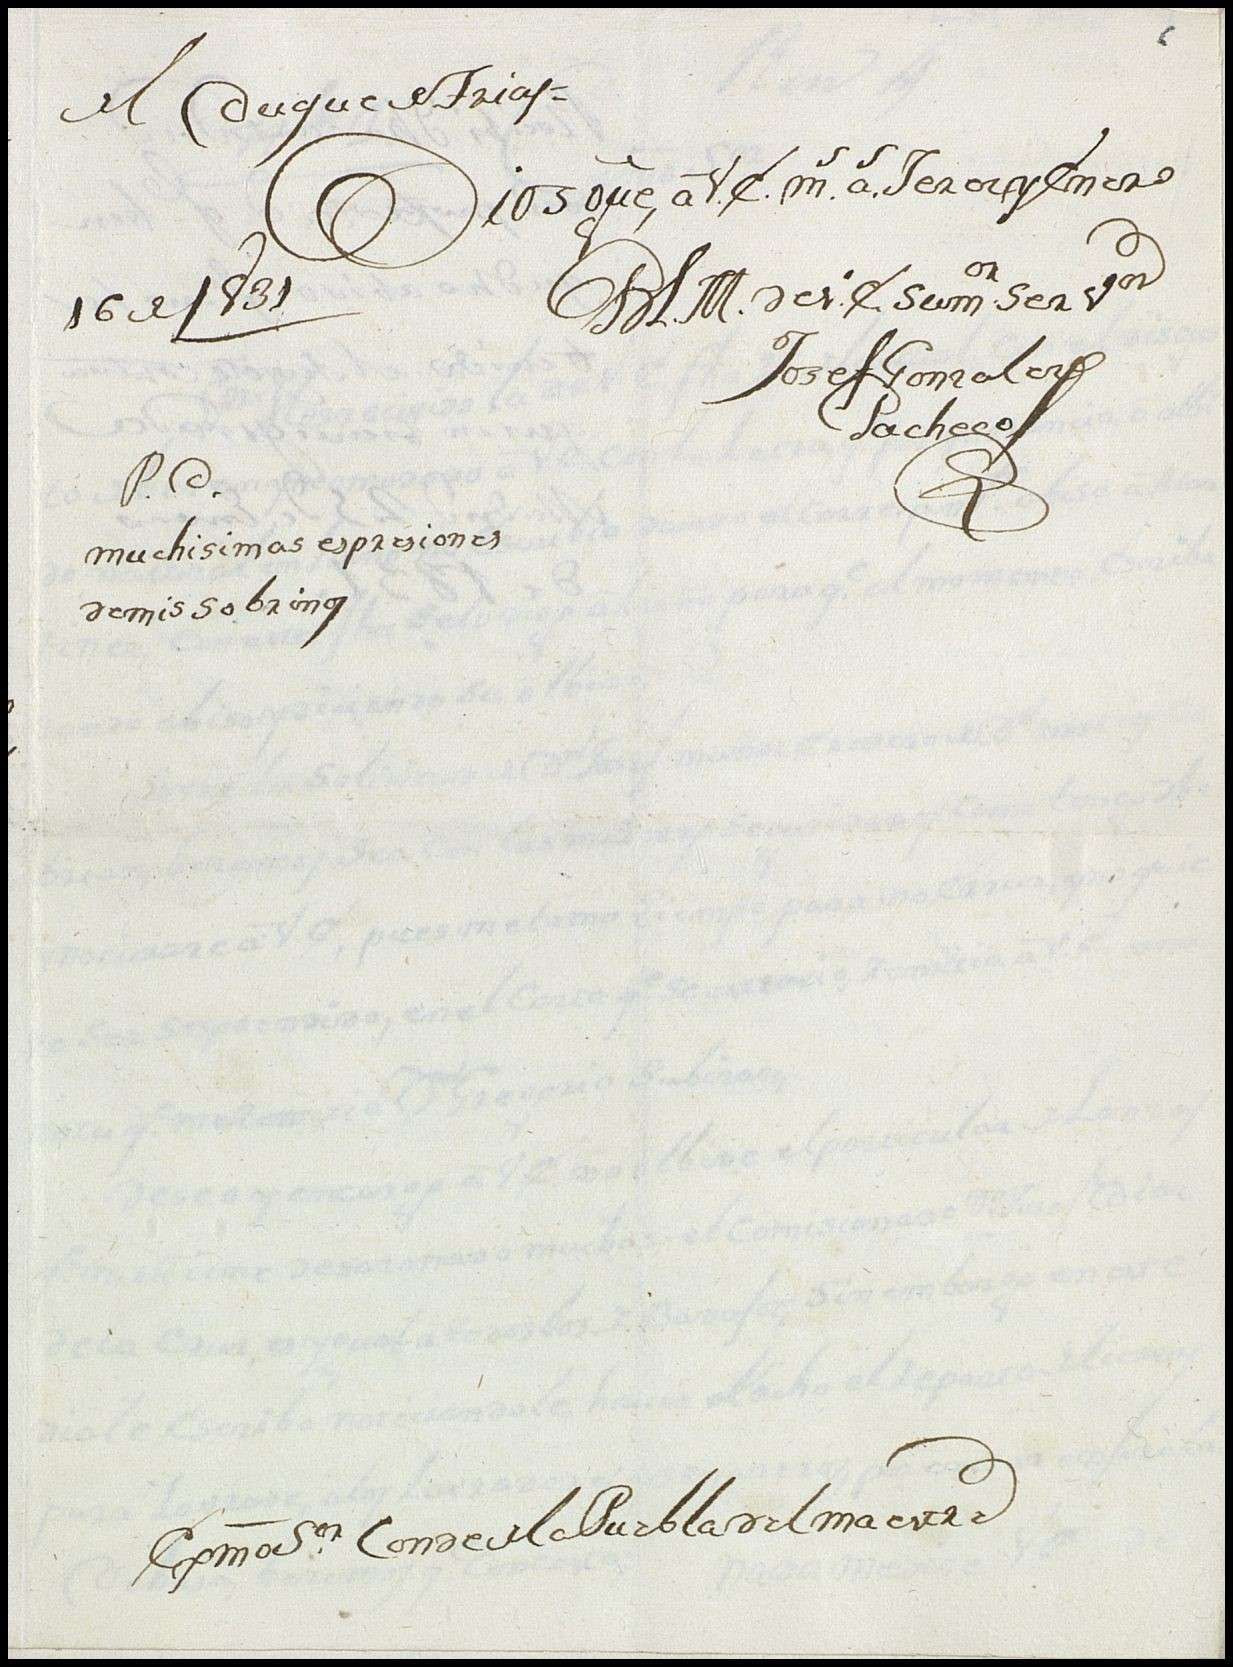 el Duque de Frias=
Dios gũe, a V. E. m.s a.s Jerez y Enero
16 de 1831
B. L. M. de V. E. su m.or serv.or
Josef Gonzalez
Pacheco
P. D.
muchisimas espresiones
de mis sobrinos
Exmo S.or Conde de la Puebla del maestre